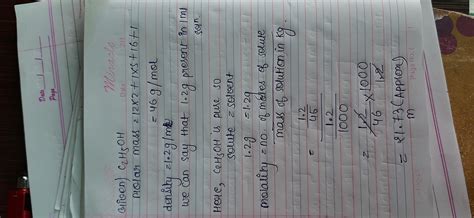 Date
Page
(given) C2H5OH
molar mass = 12x2 + 1x5 + 16 + 1
= 46 g/mol
density = 1.2g/ml
we can say that 1.2g present in 1ml
soln
Here, C2H5OH is pure so
solute = solvent
1.2g = 1.2g
molality = no. of moles of solute
mass of solution in kg.
= 1.2
46
1.2
1000
= 1.2 x 1000
46 1.2
= 21.73 (approx)
m
Date
Page